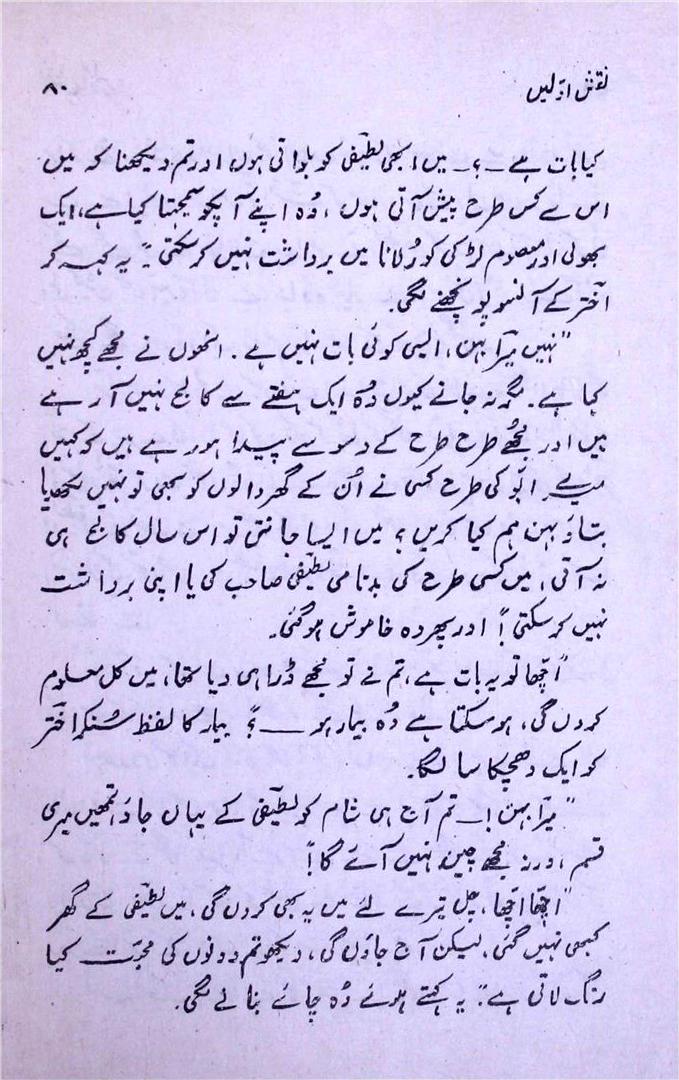 نقوش اوّلیں
۸۰
کیا بات ہے ــ؟ــ میں ابھی لطیفی کو بلواتی ہوں اور تم دیکھنا کہ میں
اس سے کس طرح پیش آتی ہوں ، وُہ اپنے آپکو سمجھتا کیا ہے، ایک
بھولی اور معصوم لڑکی کو رُلانا میں برداشت نہیں کر سکتی۔" یہ کہہ کر
اختر کے آنسو پونچھنے لگی۔
"نہیں میراؔ بہن، ایسی کوئی بات نہیں ہے۔ انھوں نے مجھے کچھ نہیں
کہا ہے۔ مگر نہ جانے کیوں وُہ ایک ہفتے سے کالج نہیں آ رہے
ہیں اور مجُھے طرح طرح کے وسوسے پیدا ہو رہے ہیں کہ کہیں
میرے ابّو کی طرح کسی نے اُن کے گھر والوں کو بھی تو نہیں لکھدیا
بتاؤ بہن ہم کیا کریں ؟ میں ایسا جانتی تو اس سال کالج ہی
نہ آتی ، میں کسی طرح کی بدنامی لطیفی صاحب کی یا اپنی برداشت
نہیں کر سکتی !" اور پھر وہ خاموش ہو گئی۔
"اچھا تو یہ بات ہے ، تم نے تو مجھے ڈرا ہی دیا تھا، میں کل معلوم
کروں گی، ہو سکتا ہے وُہ بیمار ہو ــــ؟" بیمار کا لفظ سُنکر اختر
کو ایک دھچکا سا لگا۔
"میراؔ بہن !ــ تم آج ہی شام کو لطیفی کے یہاں جاؤ تمھیں میری
قسم ، ورنہ مجھے چین نہیں آئے گا !"
"اچھا اچھا ، چل تیرے لئے میں یہ بھی کروں گی، میں لطیفی کے گھر
کبھی نہیں گئی، لیکن آج جاؤں گی ، دیکھو تم دونوں کی محبّت کیا
رنگ لاتی ہے۔" یہ کہتے ہوئے وُہ چائے بنانے لگی۔